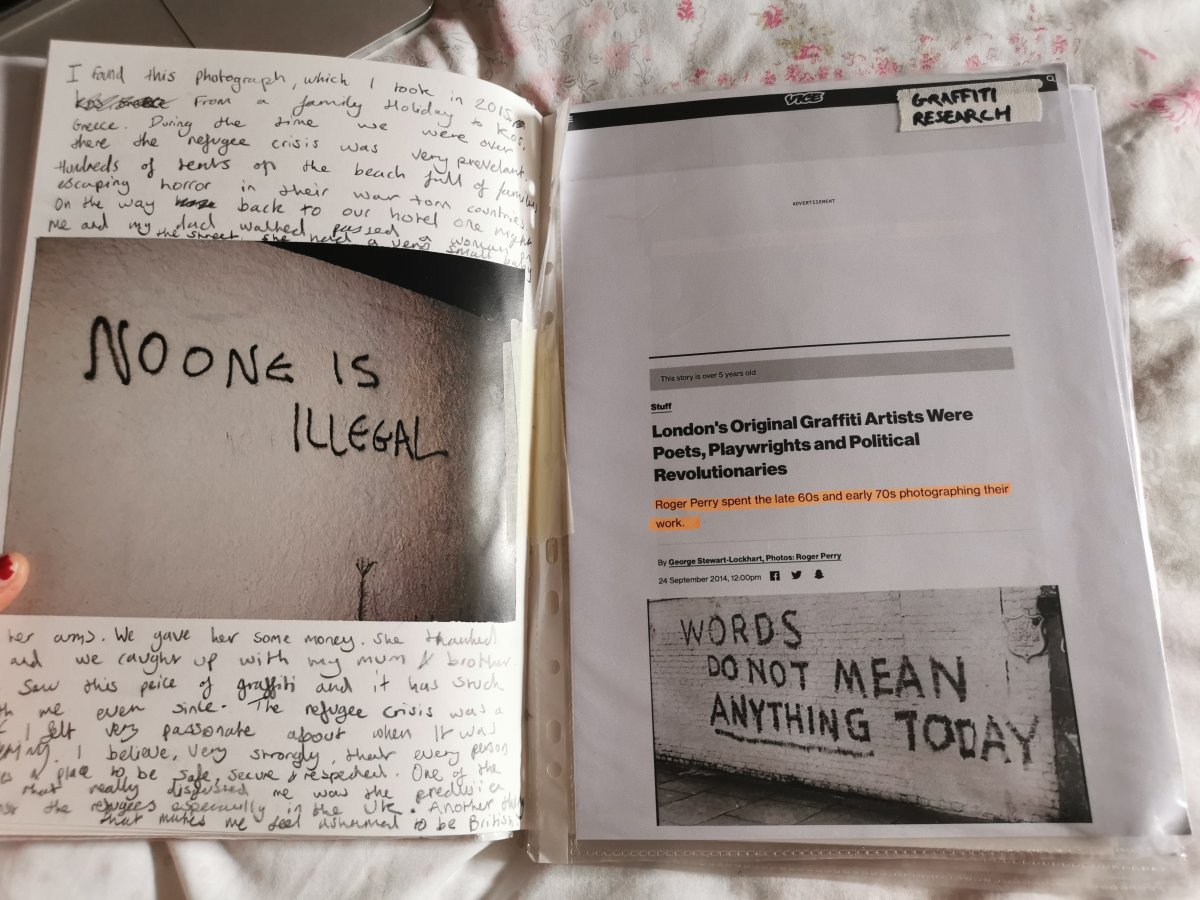 I found this photograph, which I took in 2015,
From a family Holiday to Kos,
Greece. During the time we were over
there the refugee crisis was very prevelant.
Hundreds of tents on the beach full of families
escaping horror in their war torn countries.
On the way back to our hotel one night
me and my dad walked passed a woman on
the street, she had a very small baby
NO ONE IS
ILLEGAL
her arms. We gave her some money. She thanked
and we caught up with my mum & brother.
saw this peice of graffiti and it has stuck
me ever since. The refugee crisis was a
I felt very passionate about when it was
I believe, very strongly, that every person
a place to be safe, secure & respected. One of the
that really disgusted me was the
the refugees especially in the UK. Another
that makes me feel ashamed to be British
VICE
GRAFFITI
RESEARCH
ADVERTISEMENT
This story is over 5 years old
Stuff
London's Original Graffiti Artists Were
Poets, Playwrights and Political
Revolutionaries
Roger Perry spent the late 60s and early 70s photographing their
work.
By George Stewart-Lockhart, Photos: Roger Perry
24 September 2014, 12:00pm
WORDS
DO NOT MEAN
ANYTHING TODAY